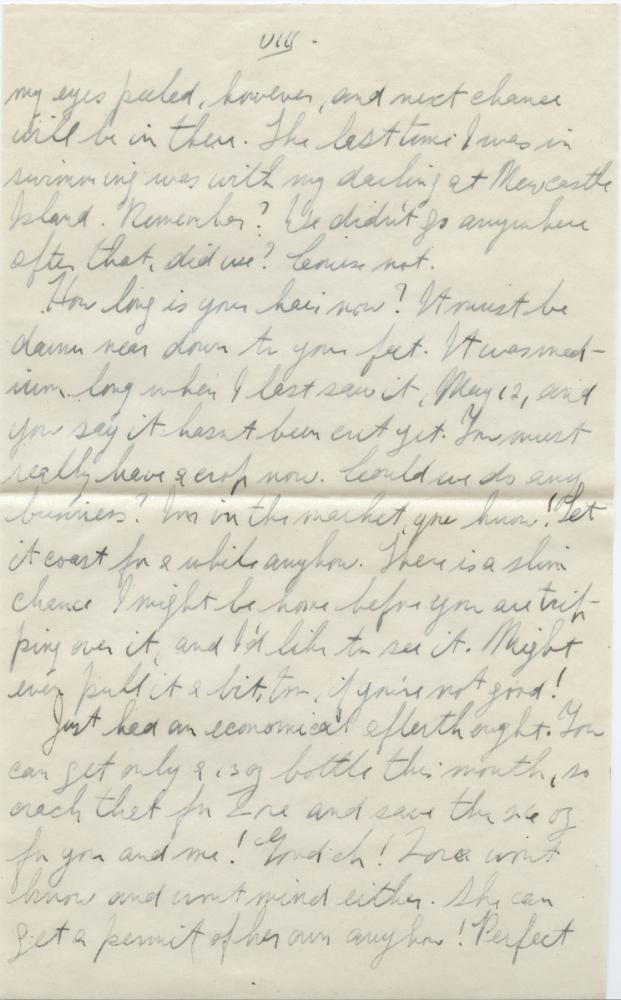 VIII.
my eyes peeled, however, and next chance
will be in there. The last time I was in
swimming was with my darling at Newcastle
Island. Remember? We didn't go anywhere
after that, did we? Course not.
How long is your hair now? It must be
damn near down to your feet. It was med-
ium long when I last saw it, May 12, and
you say it hasn't been cut yet. You must
really have a crop now. Could we do any
business? I'm in the market, you know! Let
it coast for a while anyhow. There is a slim
chance I might be home before you are trip-
ping over it, and I'd like to see it. Might
even pull it a bit, too, if you're not good!
Just had an economical afterthought. You
can get only a 13 oz bottle this month, so
crack that for Zora and save the oz
for you and me! Good eh! Zora won't
know and won't mind either. She can
get a permit of her own anyhow! Perfect